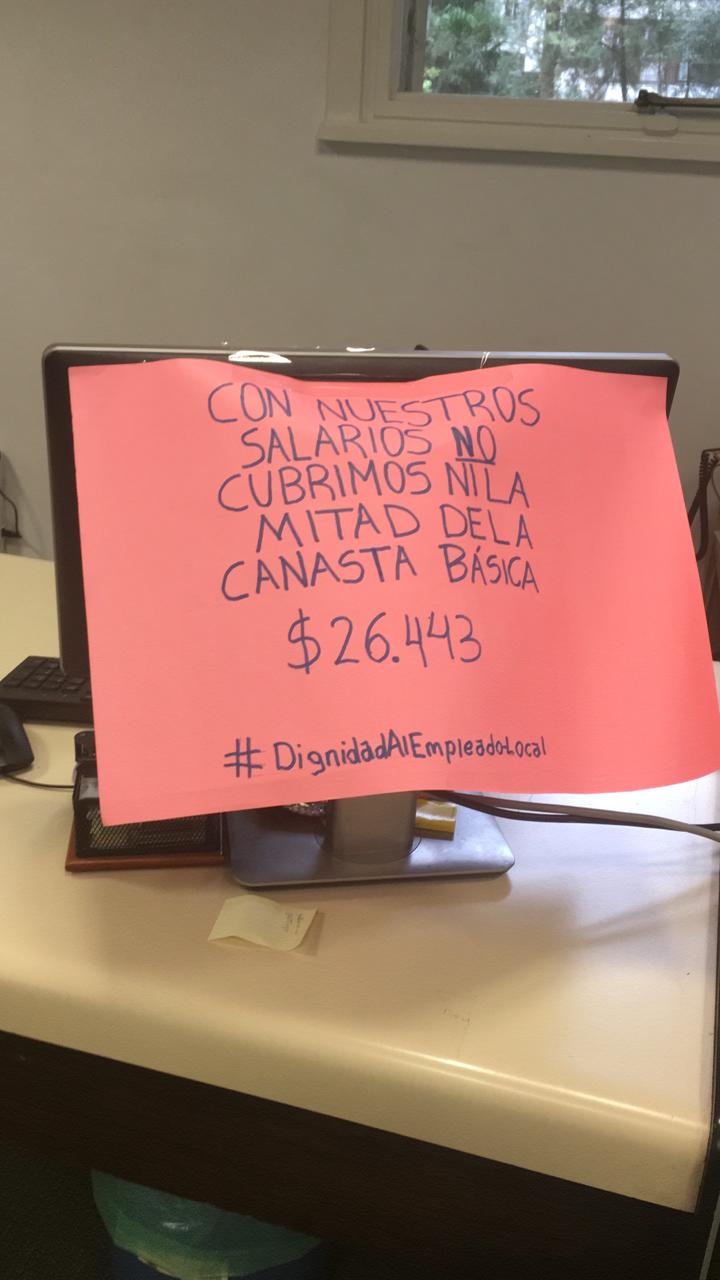 CON NUESTROS
SALARIOS NO
CUBRIMOS NI LA
MITAD DE LA
CANASTA BÁSICA
$26.443
#DignidadAlEmpleadoLocal